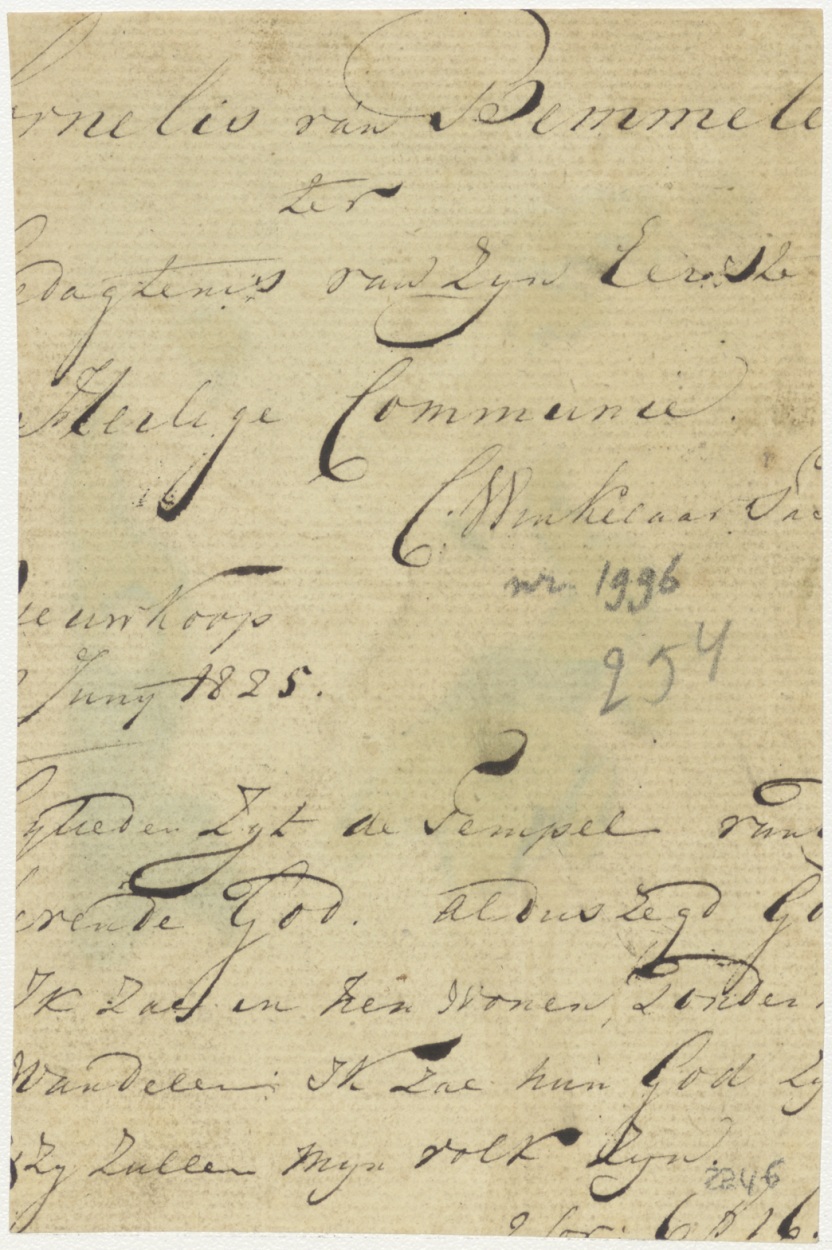 ornelis van Bemmele
ter
edagtenis van Zyn Eerste
Heilige Communie.
C. Winkelaar Pa
nr. 1996
ieuwkoop
254
Juny 1825.
gylieden Zyt de Tempel van
levende God. aldus Zegd Go
Ik Zal in hen Wonen, Zonder
Wandelen: Ik Zal hun God Zy
Zy Zullen Myn volk Zyn.
2246
2 Cor: 6 v 16.